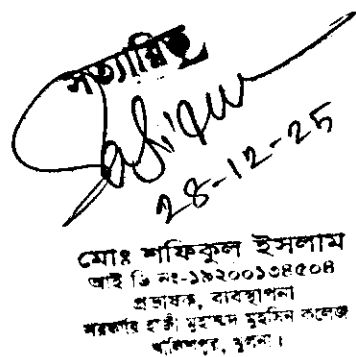 সত্যায়িত
Safiqur
28-12-25
মোঃ শফিকুল ইসলাম
আই ডি নং-১৯২০০১৩৪৫০৪
প্রভাষক, ব্যবস্থাপনা
সরকারি হাজী মুহাম্মদ মুহসিন কলেজ
খালিশপুর, খুলনা।